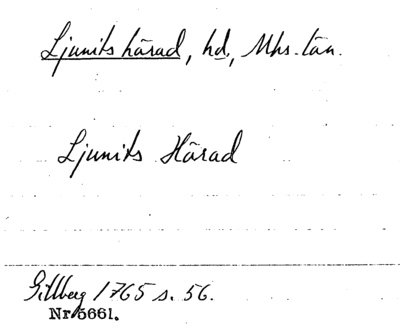 Ljunits härad, hd, Mhs. län.
Ljunits Härad
Gillberg 1765 s. 56.
Nr 5661.